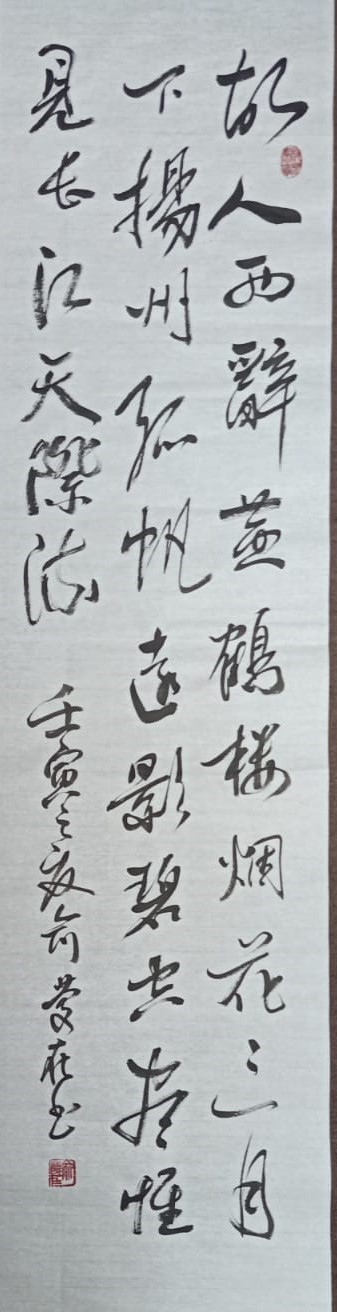 故人西辭黃鶴樓烟花三月
下揚州孤帆遠影碧空盡惟
見長江天際流
壬寅之夏俞慶在書